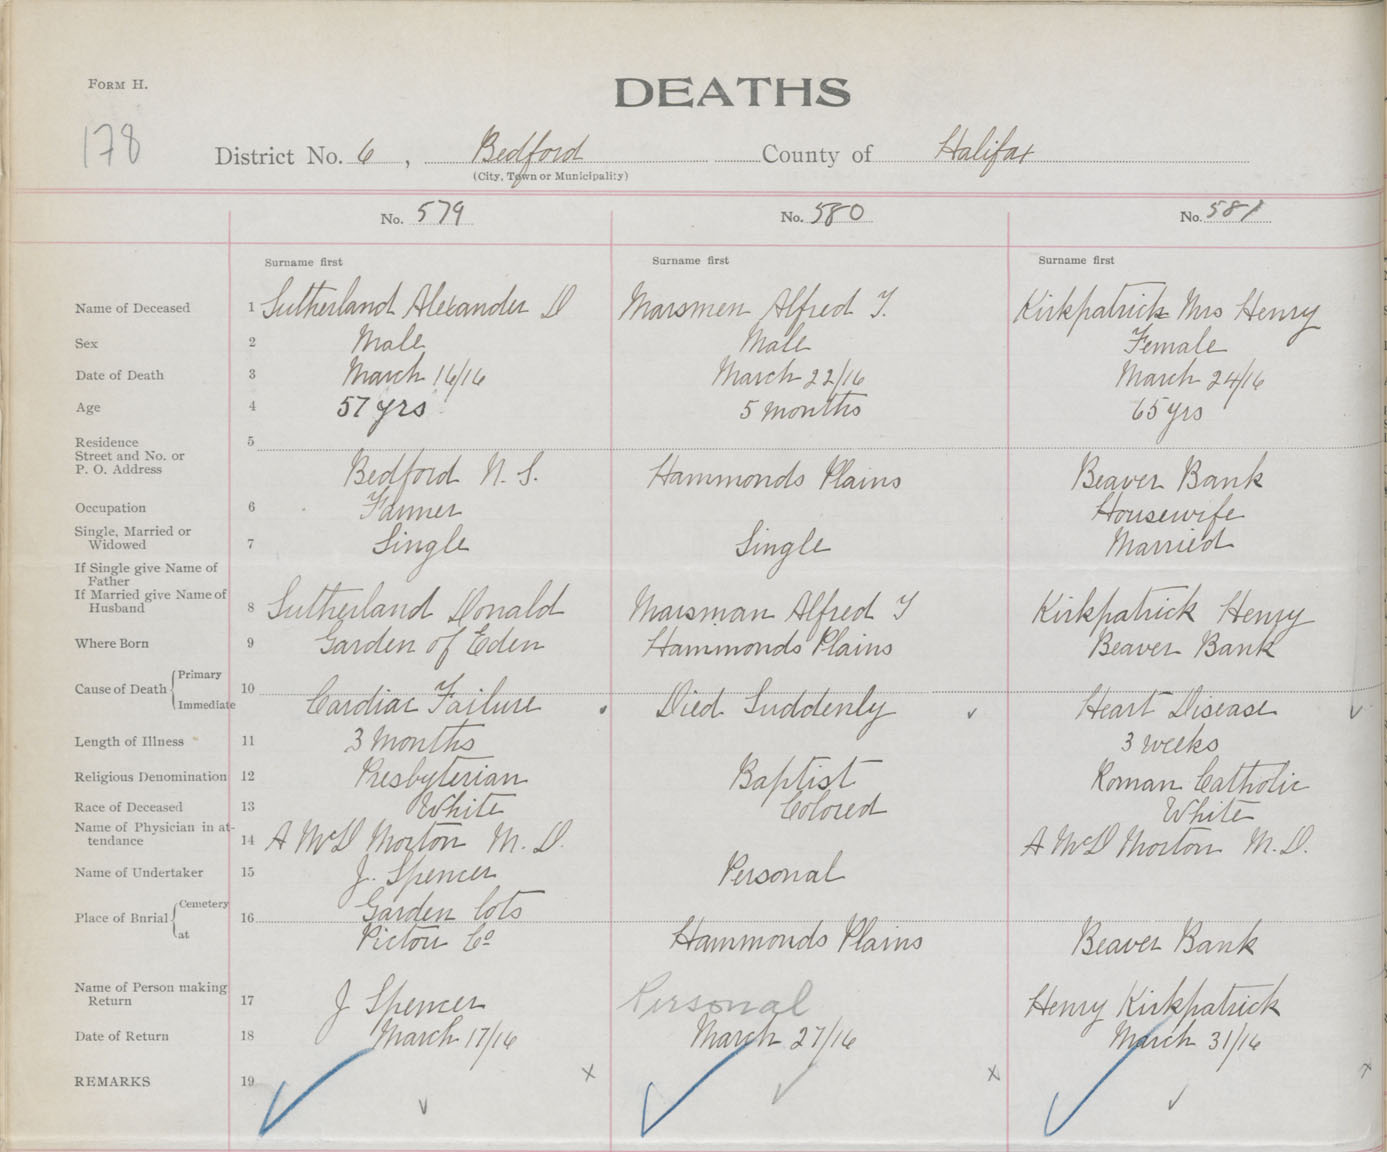 Form H.
DEATHS
178
District No. 6, Bedford County of Halifax
(City, Town or Municipality)
No. 579 No. 580 No. 581
Surname first Surname first Surname first
Name of Deceased 1 Sutherland Alexander D Marsmen Alfred T. Kirkpatrick Mrs Henry
Sex 2 Male Male Female
Date of Death 3 March 16/16 March 22/16 March 24/16
Age 4 57 yrs 5 months 65 yrs
Residence 5
Street and No. or
P. O. Address Bedford N. S. Hammonds Plains Beaver Bank
Occupation 6 Farmer Housewife
Single, Married or
Widowed 7 Single Single Married
If Single give Name of
Father
If Married give Name of
Husband 8 Sutherland Donald Marsman Alfred T Kirkpatrick Henry
Where Born 9 Garden of Eden Hammonds Plains Beaver Bank
Primary
Cause of Death 10
Immediate Cardiac Failure Died Suddenly Heart Disease
Length of Illness 11 3 months 3 weeks
Religious Denomination 12 Presbyterian Baptist Roman Catholic
Race of Deceased 13 White Colored White
Name of Physician in at-
tendance 14 A McD Morton M. D. A McD Morton M. D.
Name of Undertaker 15 J. Spencer Personal
Cemetery Garden Lots
Place of Burial 16
at Pictou Co Hammonds Plains Beaver Bank
Name of Person making
Return 17 J Spencer Personal Henry Kirkpatrick
Date of Return 18 March 17/16 March 27/16 March 31/16
REMARKS 19